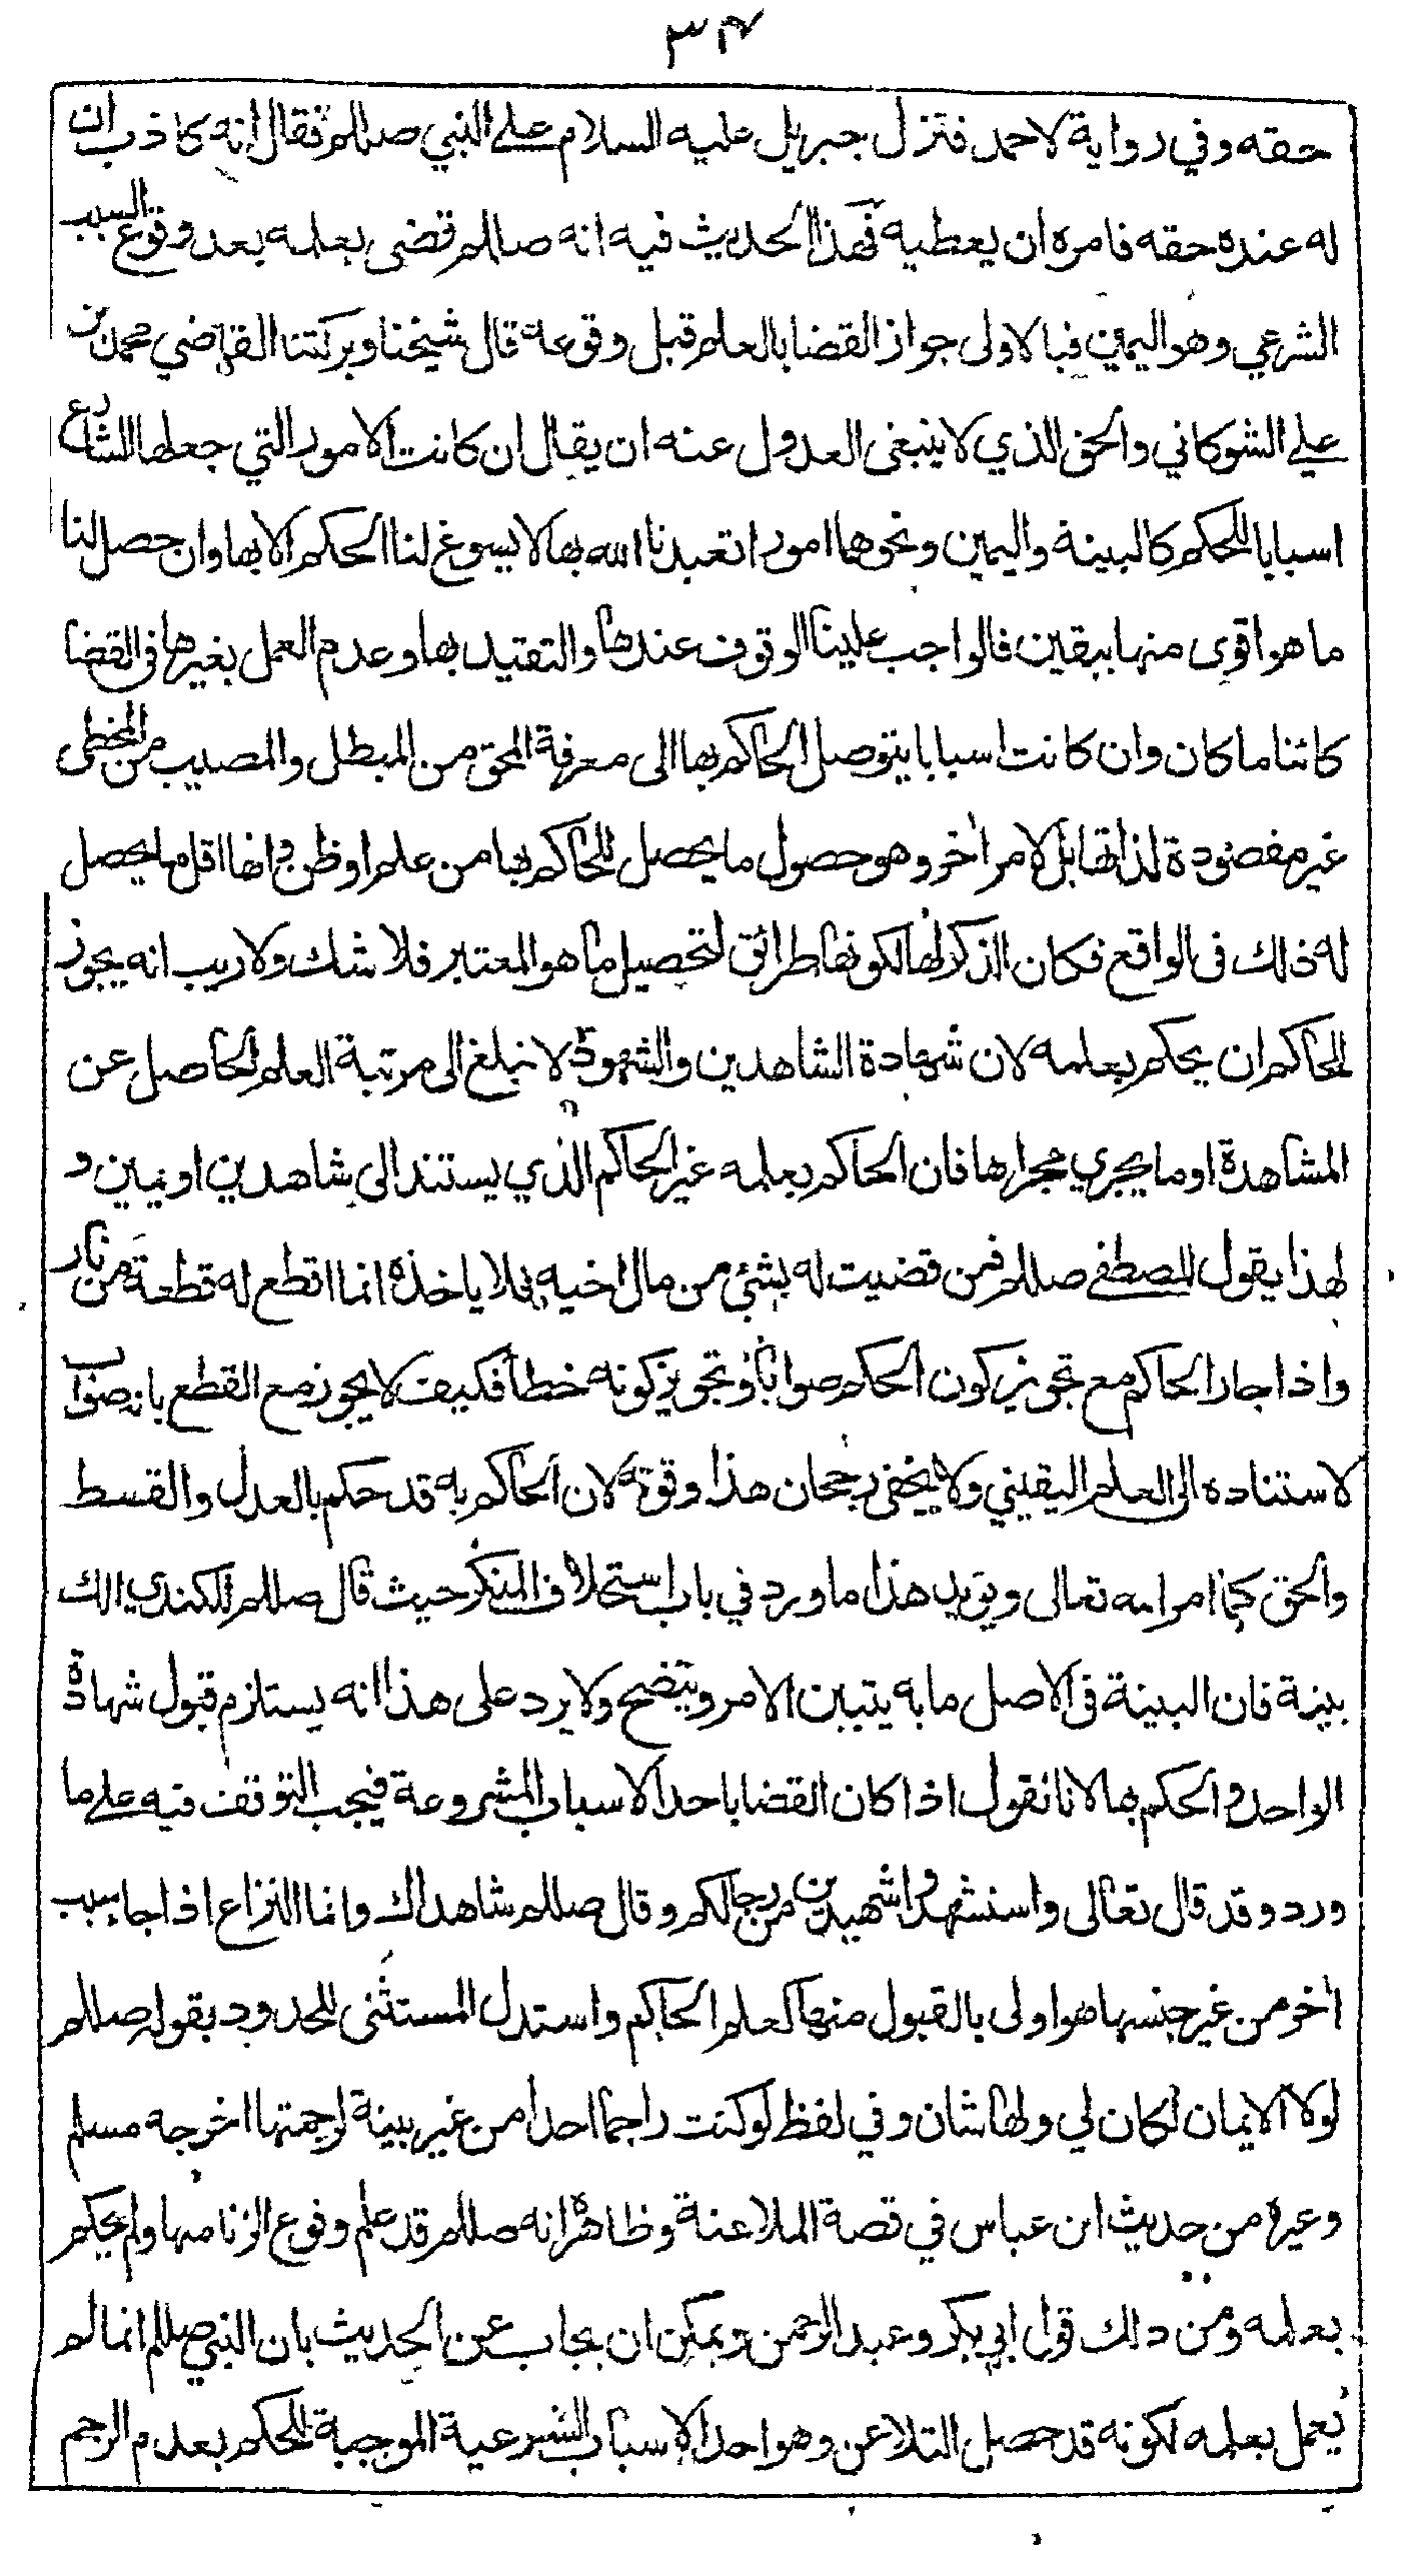 ٣٤
حقه وفي رواية لاحمد فنزل جبريل عليه السلام على النبي صللم فقال انه كاذب ان
له عنده حقه فامره ان يعطيه فهذا الحديث فيه انه صللم قضى بعلمه بعد وقوع السبب
الشرعي وهو اليمين فبالاولى جواز القضا بالعلم قبل وقوعه قال شيخنا وبركتنا القاضي محمد بن
علي الشوكاني والحق الذي لا ينبغى العدول عنه ان يقال ان كانت الامور التي جعلها الشارع
اسبابا للحكم كالبينة واليمين ونحوهما امورا تعبدنا الله بها لا يسوغ لنا الحكم الا بها وان حصل لنا
ما هو اقوى منها بيقين فالواجب علينا الوقوف عندها والتقيد بها وعدم العمل بغيرها فى القضا
كائنا ما كان وان كانت اسبابا يتوصل الحاكم بها الى معرفة المحق من المبطل والمصيب من المخطى
غير مقصودة لذاتها بل لامر اخر وهو حصول ما يحصل للحاكم بها من علم او ظن وانها اقل ما يحصل
له ذلك فى الواقع فكان الذكر لها لكونها طرائق لتحصيل ما هو المعتبر فلا شك ولا ريب انه يجوز
للحاكم ان يحكم بعلمه لان شهادة الشاهدين والشهود لا تبلغ الى مرتبة العلم الحاصل عن
المشاهدة او ما يجري مجراها فان الحاكم بعلمه غير الحاكم الذي يستند الى شاهدين او يمين و
لهذا يقول المصطفى صللم فمن قضيت له بشئ من مال اخيه فلا ياخذه انما اقطع له قطعة من نار
واذا جاز الحاكم مع تجويز كون الحكم صوابا وتجويز كونه خطأ فكيف لا يجوز مع القطع بانه صواب
لاستناده الى العلم اليقيني ولا يخفى رجحان هذا وقوته لان الحاكم به قد حكم بالعدل والقسط
والحق كما امر الله تعالى ويؤيد هذا ما ورد في باب استحلاف المنكر حيث قال صللم للكندي الك
بينة فان البينة فى الاصل ما به يتبين الامر ويتضح ولا يرد على هذا انه يستلزم قبول شهادة
الواحد والحكم بها لانا نقول اذا كان القضا باحد الاسباب المشروعة فيجب التوقف فيه على ما
ورد وقد قال تعالى واستشهدوا شهيدين من رجالكم وقال صللم شاهداك وانما النزاع اذا جا سبب
اخر من غير جنسها هو اولى بالقبول منها كعلم الحاكم واستدل المستثنى للحدود بقوله صللم
لولا الايمان لكان لي ولها شان وفي لفظ لو كنت راجما احدا من غير بينة لرجمتها اخرجه مسلم
وغيره من حديث ابن عباس في قصة الملاعنة وظاهره انه صللم قد علم وقوع الزنا منها ولم يحكم
بعلمه ومن ذلك قول ابي بكر وعبد الرحمن ويمكن ان يجاب عن الحديث بان النبي صللم انما لم
يعمل بعلمه لكونه قد حصل التلاعن وهو احد الاسباب الشرعية الموجبة للحكم بعدم الرجم